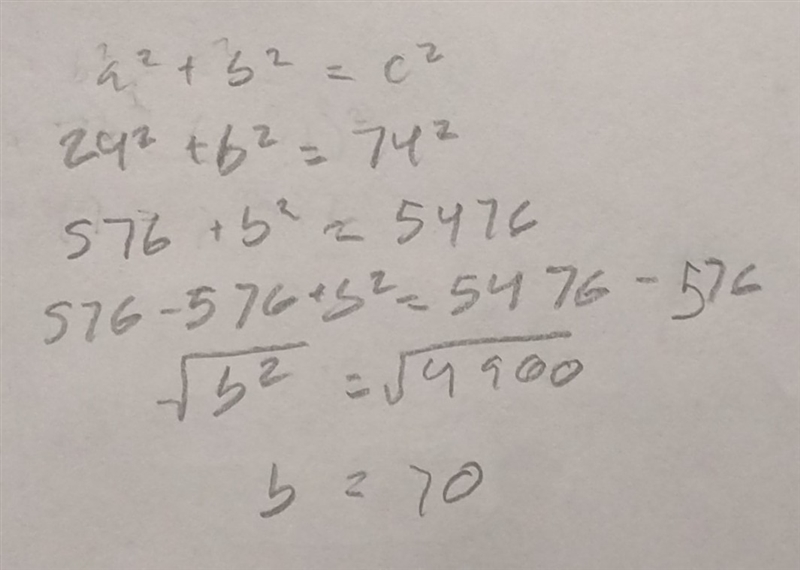 a² + b² = c²
24² + b² = 74²
576 + b² = 5476
576 - 576 + b² = 5476 - 576
√b² = √4900
b = 70